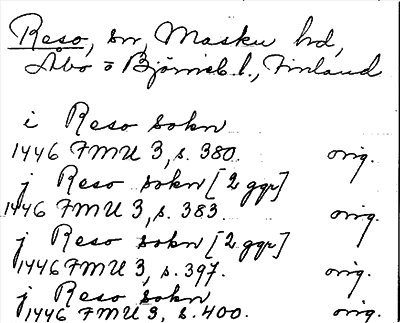 Reso, sn, Masku hd,
Åbo o Björneb. l., Finland
i Reso sokn
1446 FMU 3, s. 380. orig.
j Reso sokn [2 ggr]
1446 FMU 3, s. 383 orig.
j Reso sokn [2 ggr]
1446 FMU 3, s. 397. orig.
j Reso sokn
1446 FMU 3, s. 400. orig.